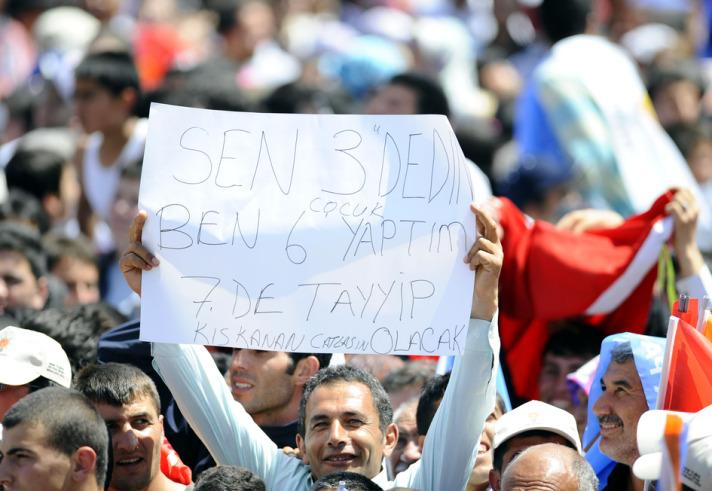 SEN 3"DEDİN
BEN 6 ÇOCUK YAPTIM
7. DE TAYYİP
KISKANAN ÇATLASIN OLACAK